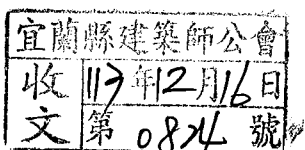 宜蘭縣建築師公會
收文
113年12月16日
第0824號